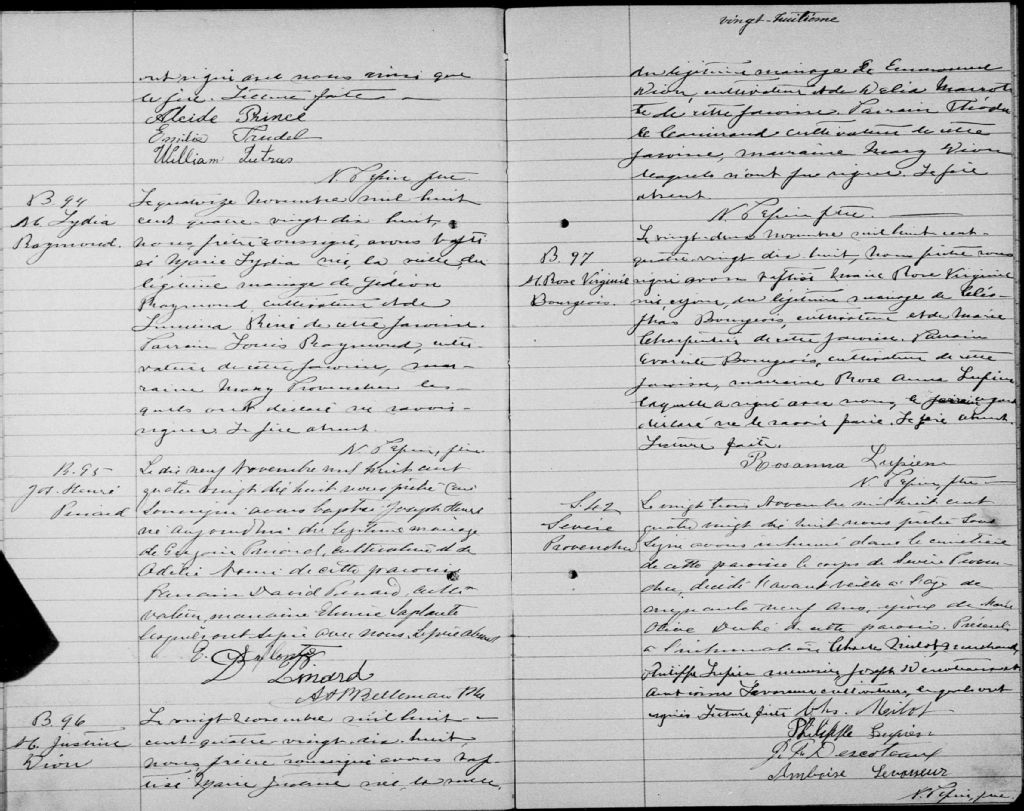 ont signé avec nous ainsi que
le père. Lecture faite
Alcide Prince
Emilia Trudel
William Lutras
N. Pepin, ptre
B. 94
M. Lydia
Raymond.
Le quatorze Novembre mil huit
cent quatre-vingt dix huit,
nous prêtre soussigné, avons bapti
sé Marie Lydia née la veille, du
légitime mariage de Gédéon
Raymond cultivateur et de
René de cette paroisse.
Parrain Louis Raymond, culti-
vateur de cette paroisse, mar-
raine Mary Provencher les-
quels ont déclaré ne savoir
signer. Le père absent.
N. Pepin, ptre
B. 95
Jos. Henri
Pinard
Le dix neuf Novembre mil huit cent
quatre vingt dix huit nous prêtre
soussigné avons baptisé Joseph Henri
né aujourd'hui du légitime mariage
de Grégoire Pinard, cultivateur et de
Adélia de cette paroisse
Parrain David Pinard, culti-
vateur, marraine Laplante
lesquels ont signé avec nous. Le père absent
E. Laplante
D. Pinard
Ptre
B. 96
M. Justine
Dion
Le vingt novembre mil huit-
cent-quatre-vingt-dix-huit,
nous prêtre soussigné avons bap
tisé Marie Justine née la veille,
vingt-huitième
du légitime mariage de Emmanuel
Dion, cultivateur et de Délia Marcot
te de cette paroisse. Parrain Théodu
le cultivateur de cette
paroisse, marraine Mary Dion
lesquels n'ont pu signer. Le père
absent.
N. Pepin ptre
B. 97
M. Rose Virginie
Bourgeois.
Le vingt-deux Novembre mil huit cent-
quatre-vingt dix huit, nous prêtre sous
signé avons baptisé Marie Rose Virginie
née du légitime mariage de Cléo
phas Bourgeois, cultivateur et de Marie
Charpentier de cette paroisse. Parrain
Evariste Bourgeois, cultivateur de cette
paroisse, marraine Rose Anna Lupien
laquelle a signé avec nous, le parrain ayant
déclaré ne le savoir faire. Le père absent.
Lecture faite
Rosanna Lupien
N. Pepin, ptre
S. 42
Sévère
Provencher
Le vingt trois Novembre mil huit cent
quatre vingt dix huit nous prêtre sous
signé avons inhumé dans le cimetière
de cette paroisse le corps de Sévère Proven-
cher, décédé l'avant veille à l'age de
cinquante neuf ans, époux de Marie
Olive Dubé de cette paroisse. Présents
à l'inhumation Charles Milot, marchand,
Philippe Lupien menuisier, Joseph Descoteaux et
Ambroise Levasseur cultivateurs, lesquels ont
signé. Lecture faite Chs. Milot
Philippe Lupien
Descoteaux
Amboise Levasseur
N. Pepin, ptre